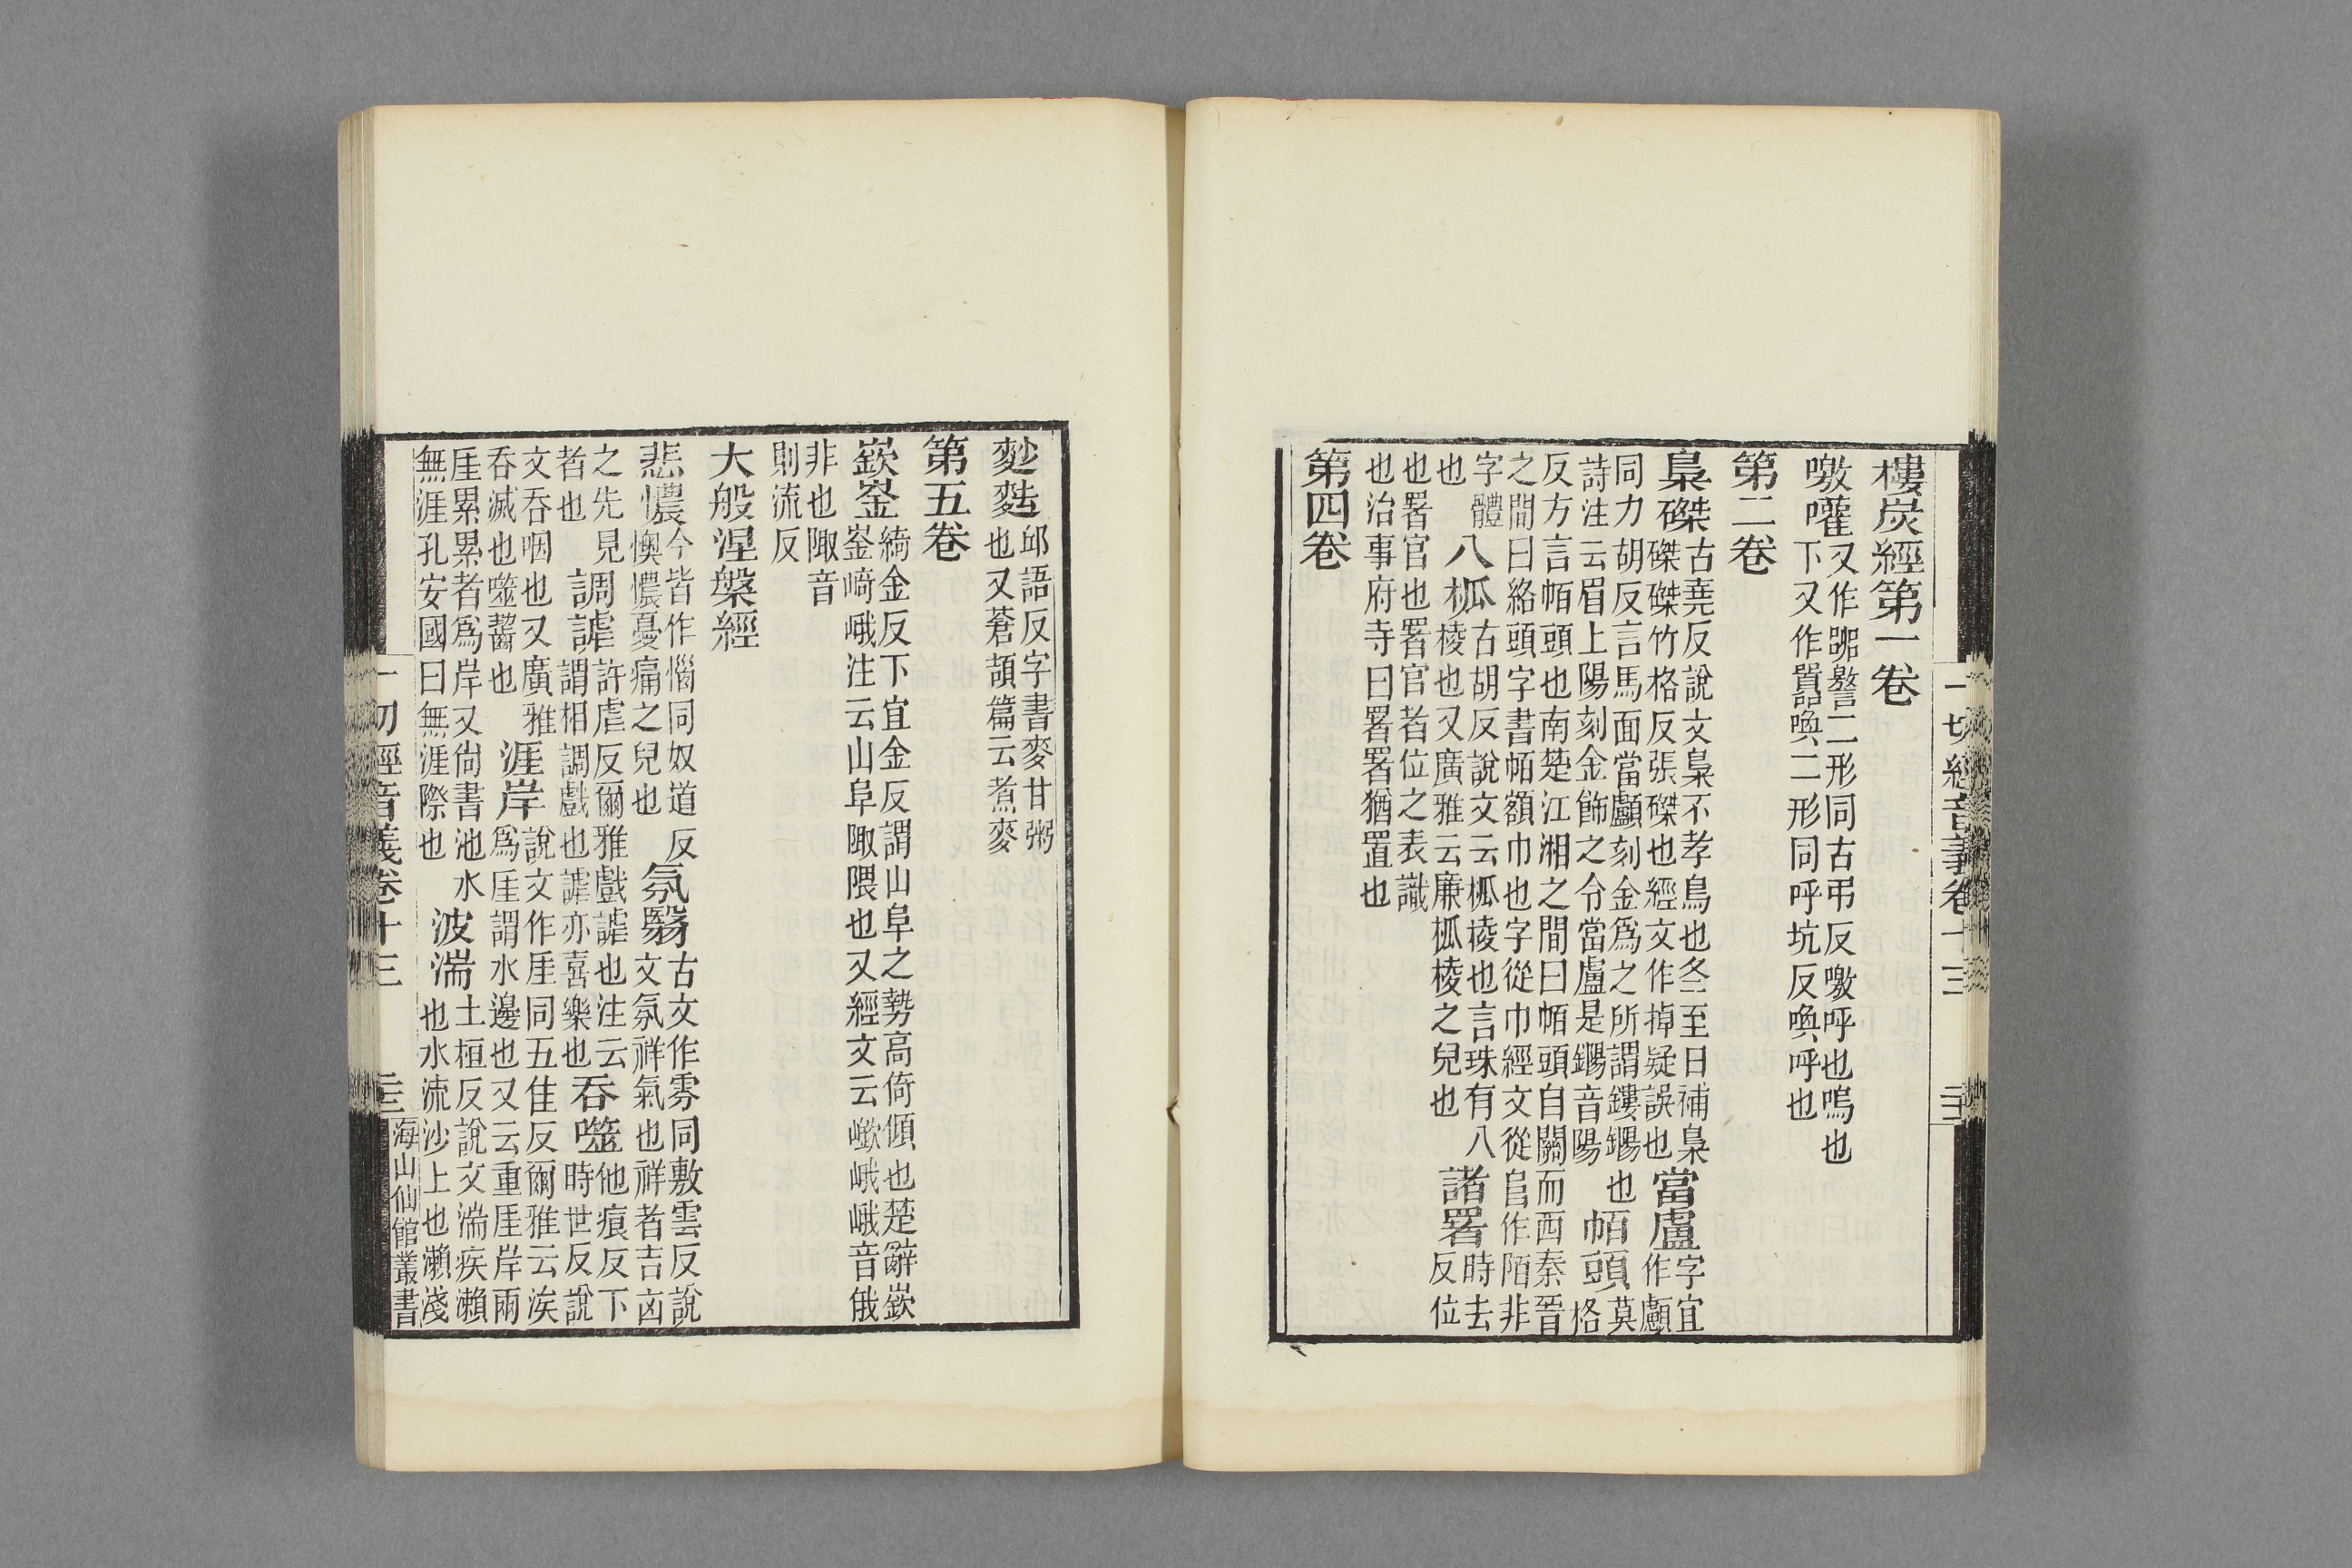 一切經音義卷十三
樓炭經第一卷
噭嚾又作警二形同古弔反噭呼也嗚也
下又作喚二形同呼坑反喚呼也
第二卷
梟磔古堯反說文梟不孝鳥也冬至日補梟
磔磔竹格反張磔也經文作掉疑誤也當盧字宜
作顱
同力胡反言馬面當顱刻金爲之所謂鏤鐊也
詩注云眉上陽刻金飾之令當盧是鐊音陽帞頭莫
格
反方言帞頭也南楚江湘之間曰帞頭自關而西秦晉
之間曰絡頭字書帞額巾也字從巾經文從𨸏作陌非
字體
也八柧古胡反說文云柧棱也言珠有八
棱也又廣雅云廉柧棱之皃也諸署時去
反位
也署官也署官者位之表識
也治事府寺曰署署猶置也
第四卷
麨麩邱語反字書麥甘粥
也又蒼頡篇云煮麥
第五卷
嶔崟綺金反下宜金反謂山阜之勢高倚傾也楚辭嶔
崟﨑峨注云山阜陬隈也又經文云㠗峨峨音俄
非也陬音
則流反
大般涅槃經
悲憹今皆作惱同奴道反
懊憹憂痛之皃也氛翳古文作雰同敷雲反說
文氛祥氣也祥者吉凶
之先見
者也調謔許虐反爾雅戲謔也注云
謂相調戲也謔亦喜樂也吞噬他痕反下
時世反說
文吞咽也又廣雅
吞滅也噬齧也涯岸說文作厓同五佳反爾雅云涘
爲厓謂水邊也又云重厓岸兩
厓累累者爲岸又尙書池水
無涯孔安國曰無涯際也波湍土桓反說文湍疾瀨
也水流沙上也瀨淺
一切經音義卷十三
海山仙館叢書